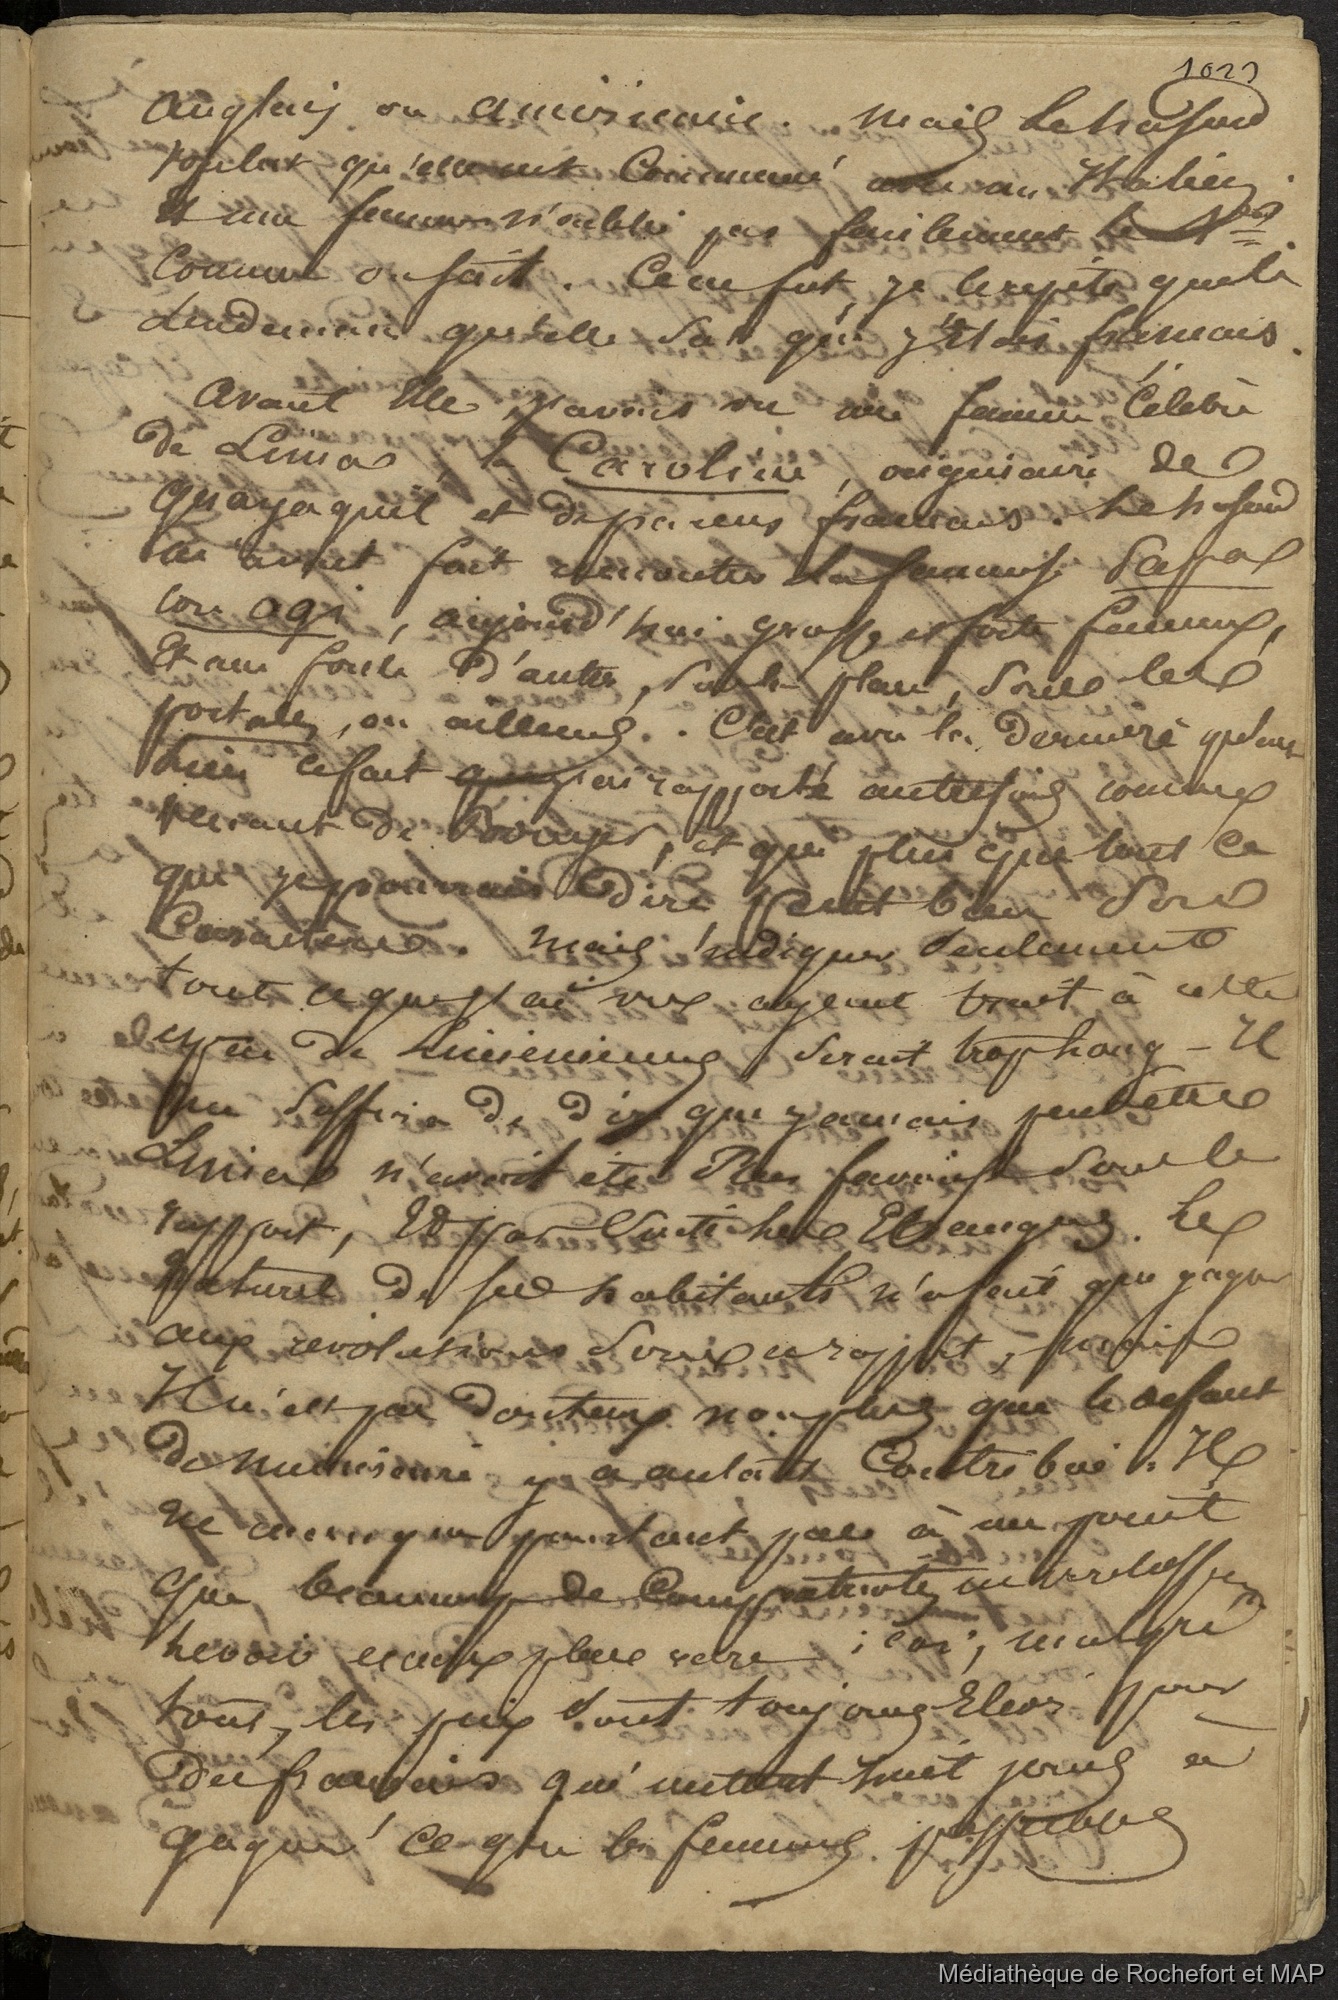 1023
anglais ou américain. Mais le hasard
voulut qu'elle eut commencé avec un Italien.
Et une femme n'oublie pas facilement le 1er
comme on sait. Ce ne fut, je le répète que le
lendemain qu'elle sut que j'étais français.
Avant Elle j'avais vu une femme Célèbre
de Lima, la Caroline, originaire de
Guayaquil et de parens francais. Le hasard
m'avait fait rencontrer la fameuse
aujourd'hui grosse et forte femme,
Et une foule d'autres, sur la place, sous les
portales, ou ailleurs. C'est avec la dernière
ce fait que j'ai rapporté autrefois comme
et que plus que tout ce
que je pourrais dire peint bien Son
Caractère. Mais indiquer Seulement
tout ce que j'ai vu ayant trait à cette
espèce de Limeniennes serait trop long - Il
me Suffira de dire que jamais peut être
Lima n'avait été Plus favorisé Sous le
rapport, Et par Suite les Etrangers. Le
Naturel de ses habitants n'a fait que gagner
aux révolutions Sous ce rapport, mais
Il n'est pas douteux non plus que le defaut
de numéraire y a autant Contribué. Il
ne manque pourtant pas à un point
que beaucoup de Compatriotes
encore plus rare ; car, malgré
tout, les prix sont toujours Elevés pour
des francais qui mettent huit jours à
gagner ce que les femmes